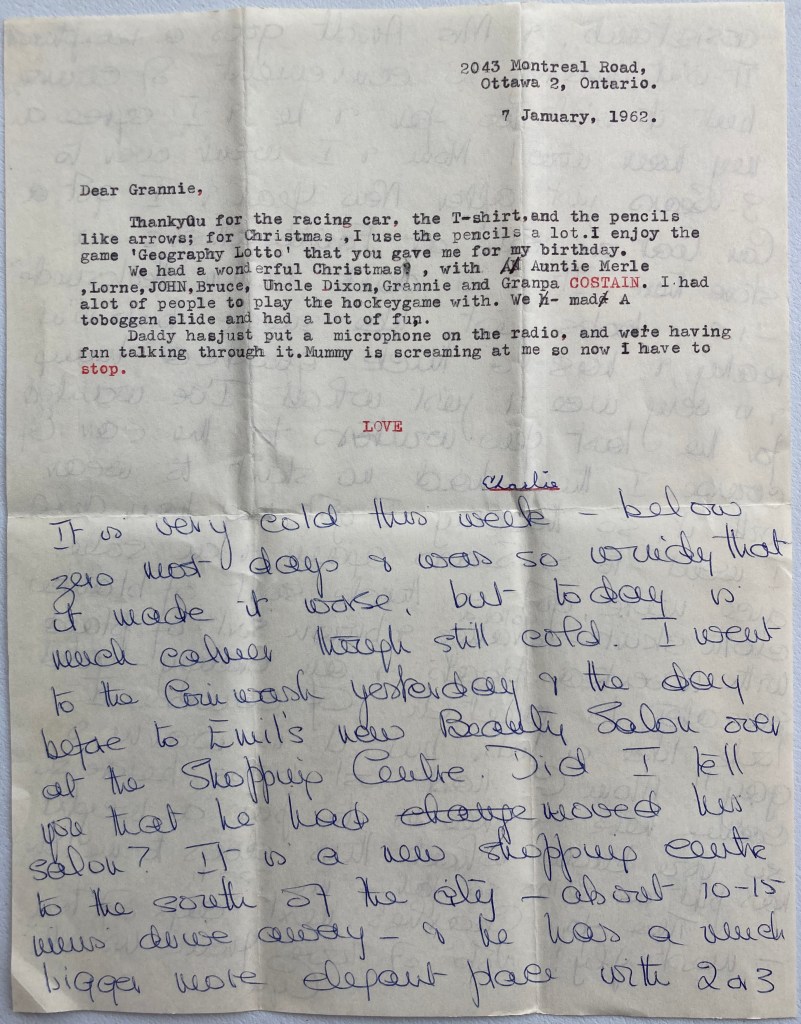 2043 Montreal Road,
Ottawa 2, Ontario.
7 January, 1962.
Dear Grannie,
ThankyOu for the racing car, the T-shirt,and the pencils
like arrows; for Christmas ,I use the pencils a lot.I enjoy the
game 'Geography Lotto' that you gave me for my birthday.
We had a wonderful Christmas , with Auntie Merle
,Lorne,JOHN,Bruce, Uncle Dixon,Grannie and Granpa COSTAIN. I had
alot of people to play the hockeygame with. We made A
toboggan slide and had a lot of fun.
Daddy hasjust put a microphone on the radio, and we're having
fun talking through it.Mummy is screaming at me so now I have to
stop.
LOVE
Charlie
It is very cold this week - below
zero most days & was so windy that
it made it worse, but today is
much calmer though still cold. I went
to the Coin wash yesterday & the day
before to Emil's new Beauty Salon over
at the Shopping Centre. Did I tell
you that he had change moved his
salon? It is a new shopping centre
to the south of the city - about 10-15
mins drive away - & he has a much
bigger more elegant place with 2 or 3